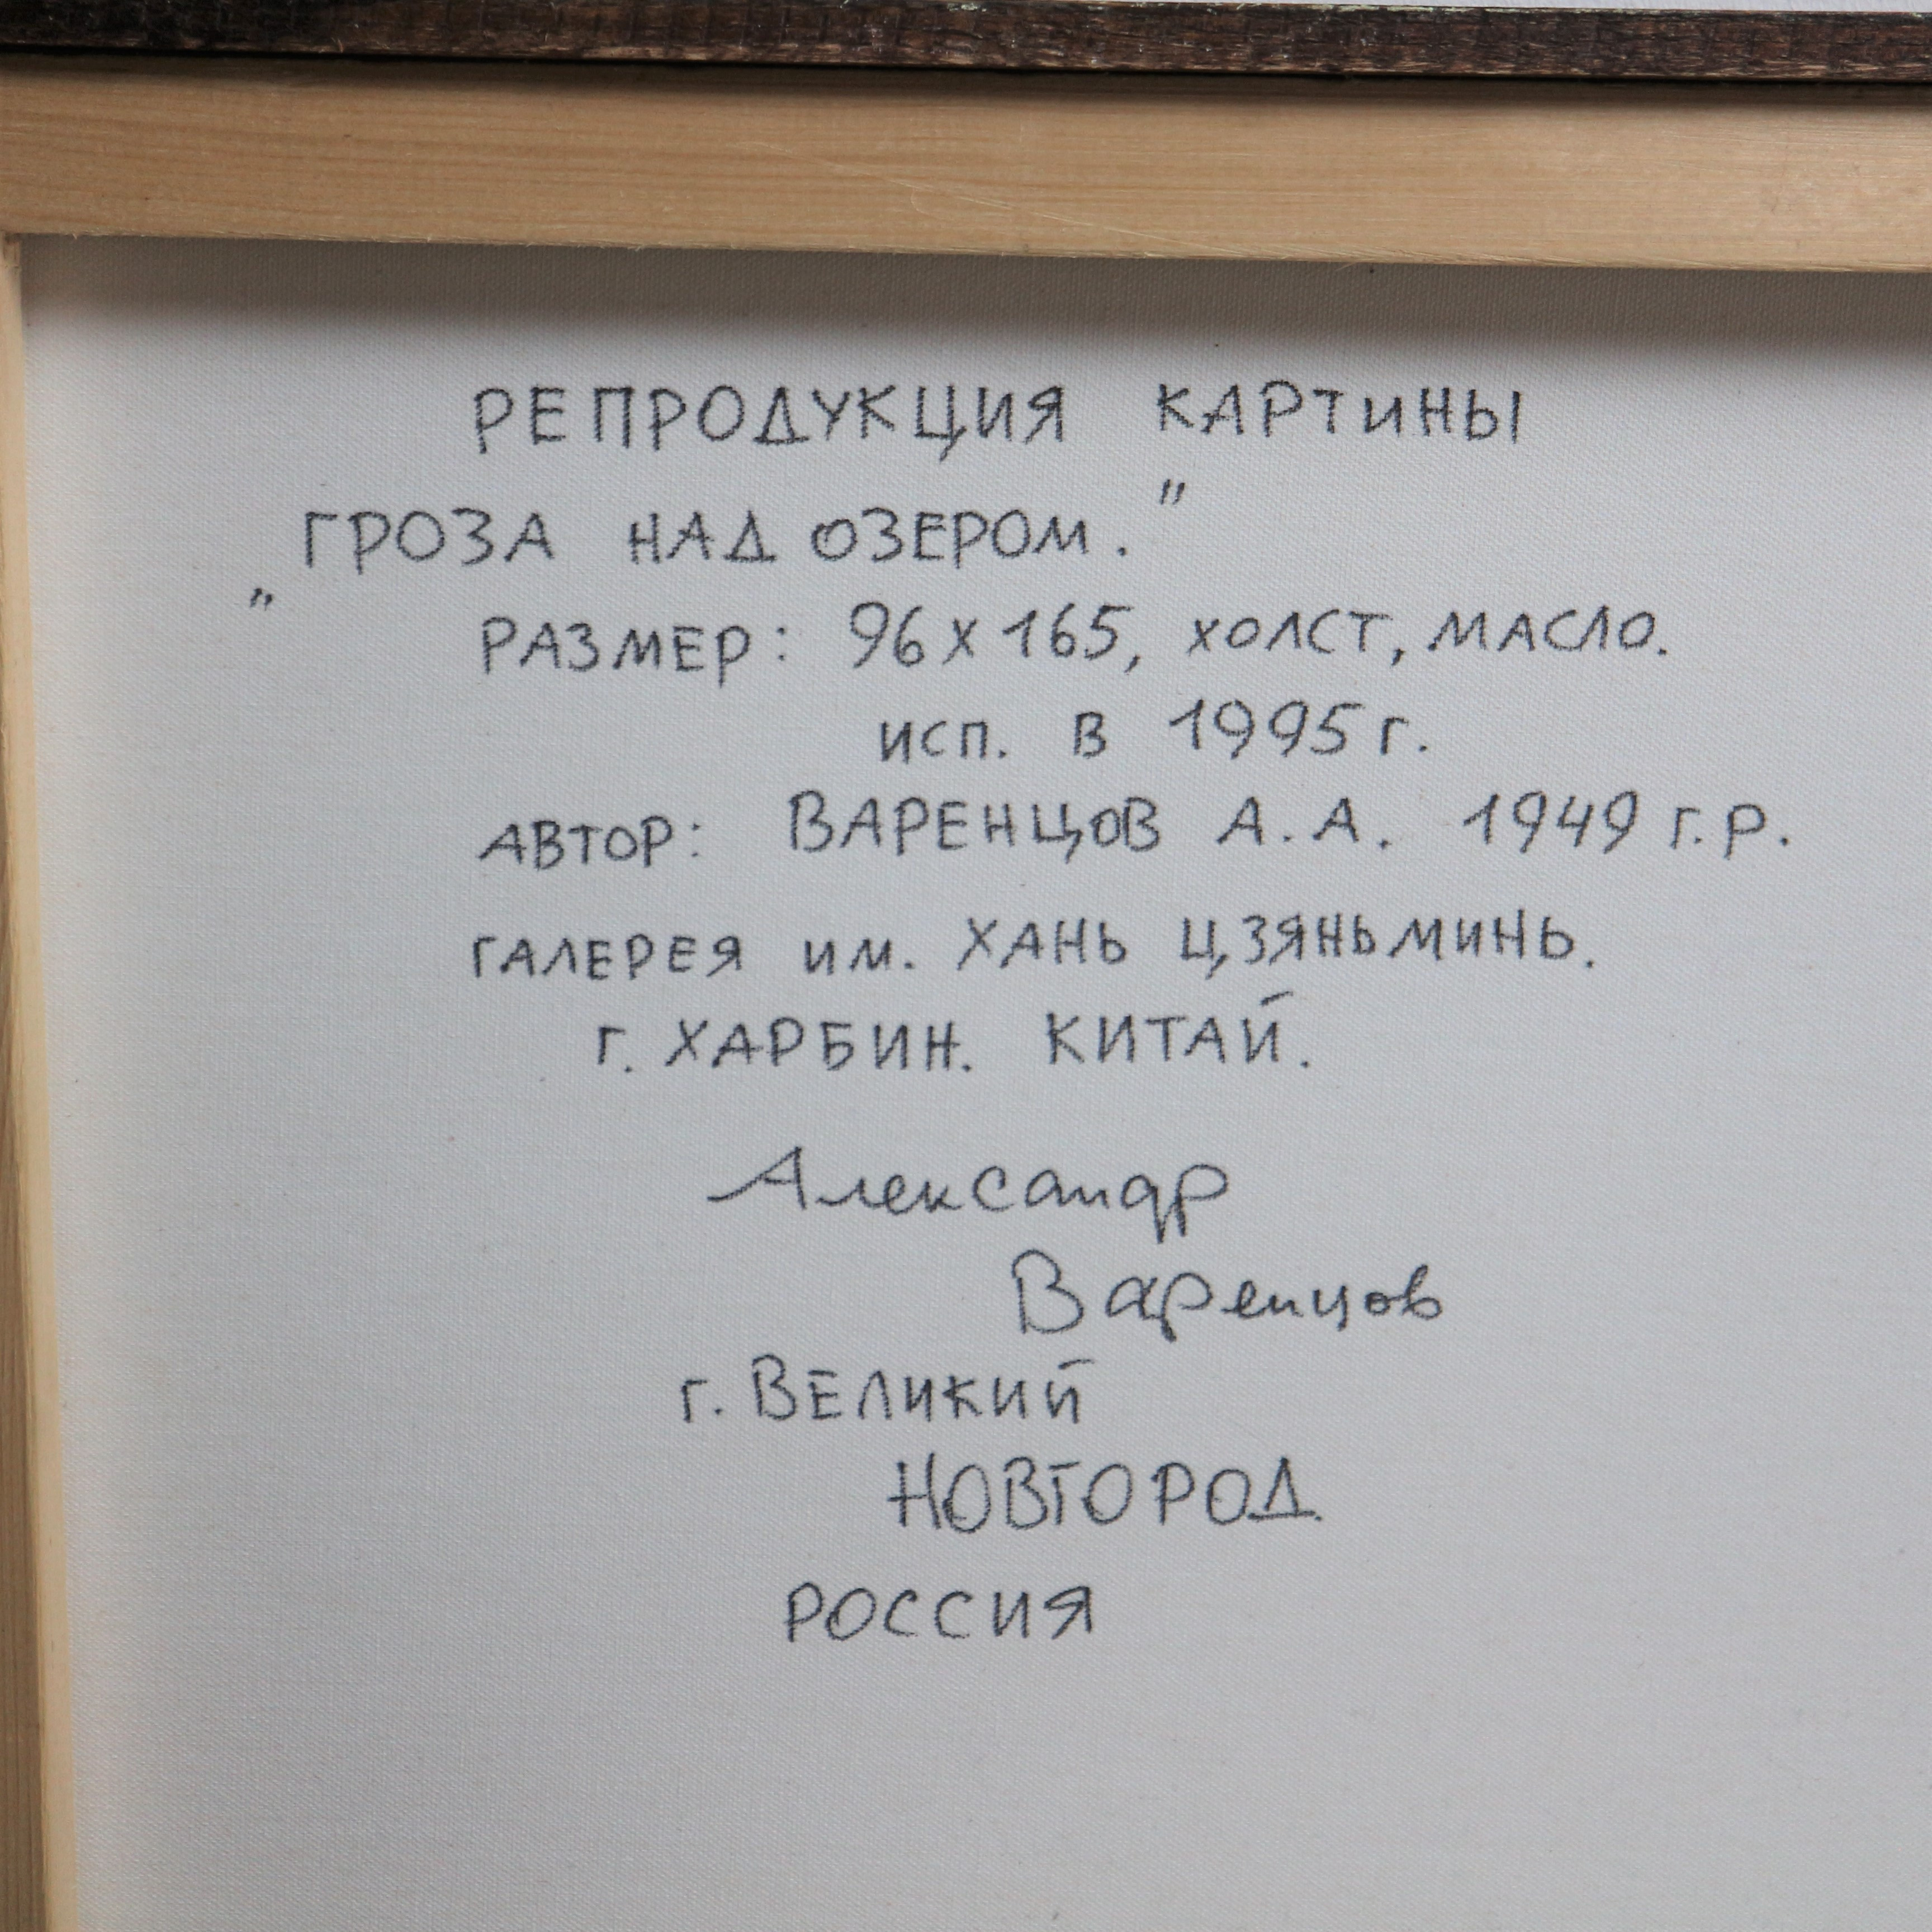 РЕПРОДУКЦИЯ КАРТИНЫ
„ГРОЗА НАД ОЗЕРОМ."
РАЗМЕР: 96 х 165, ХОЛСТ, МАСЛО.
ИСП. В 1995 г.
АВТОР: ВАРЕНЦОВ А.А. 1949 г.р.
ГАЛЕРЕЯ ИМ. ХАНЬ ЦЗЯНЬМИНЬ.
г. ХАРБИН. КИТАЙ.
Александр
Варенцов
г. ВЕЛИКИЙ
НОВГОРОД
РОССИЯ